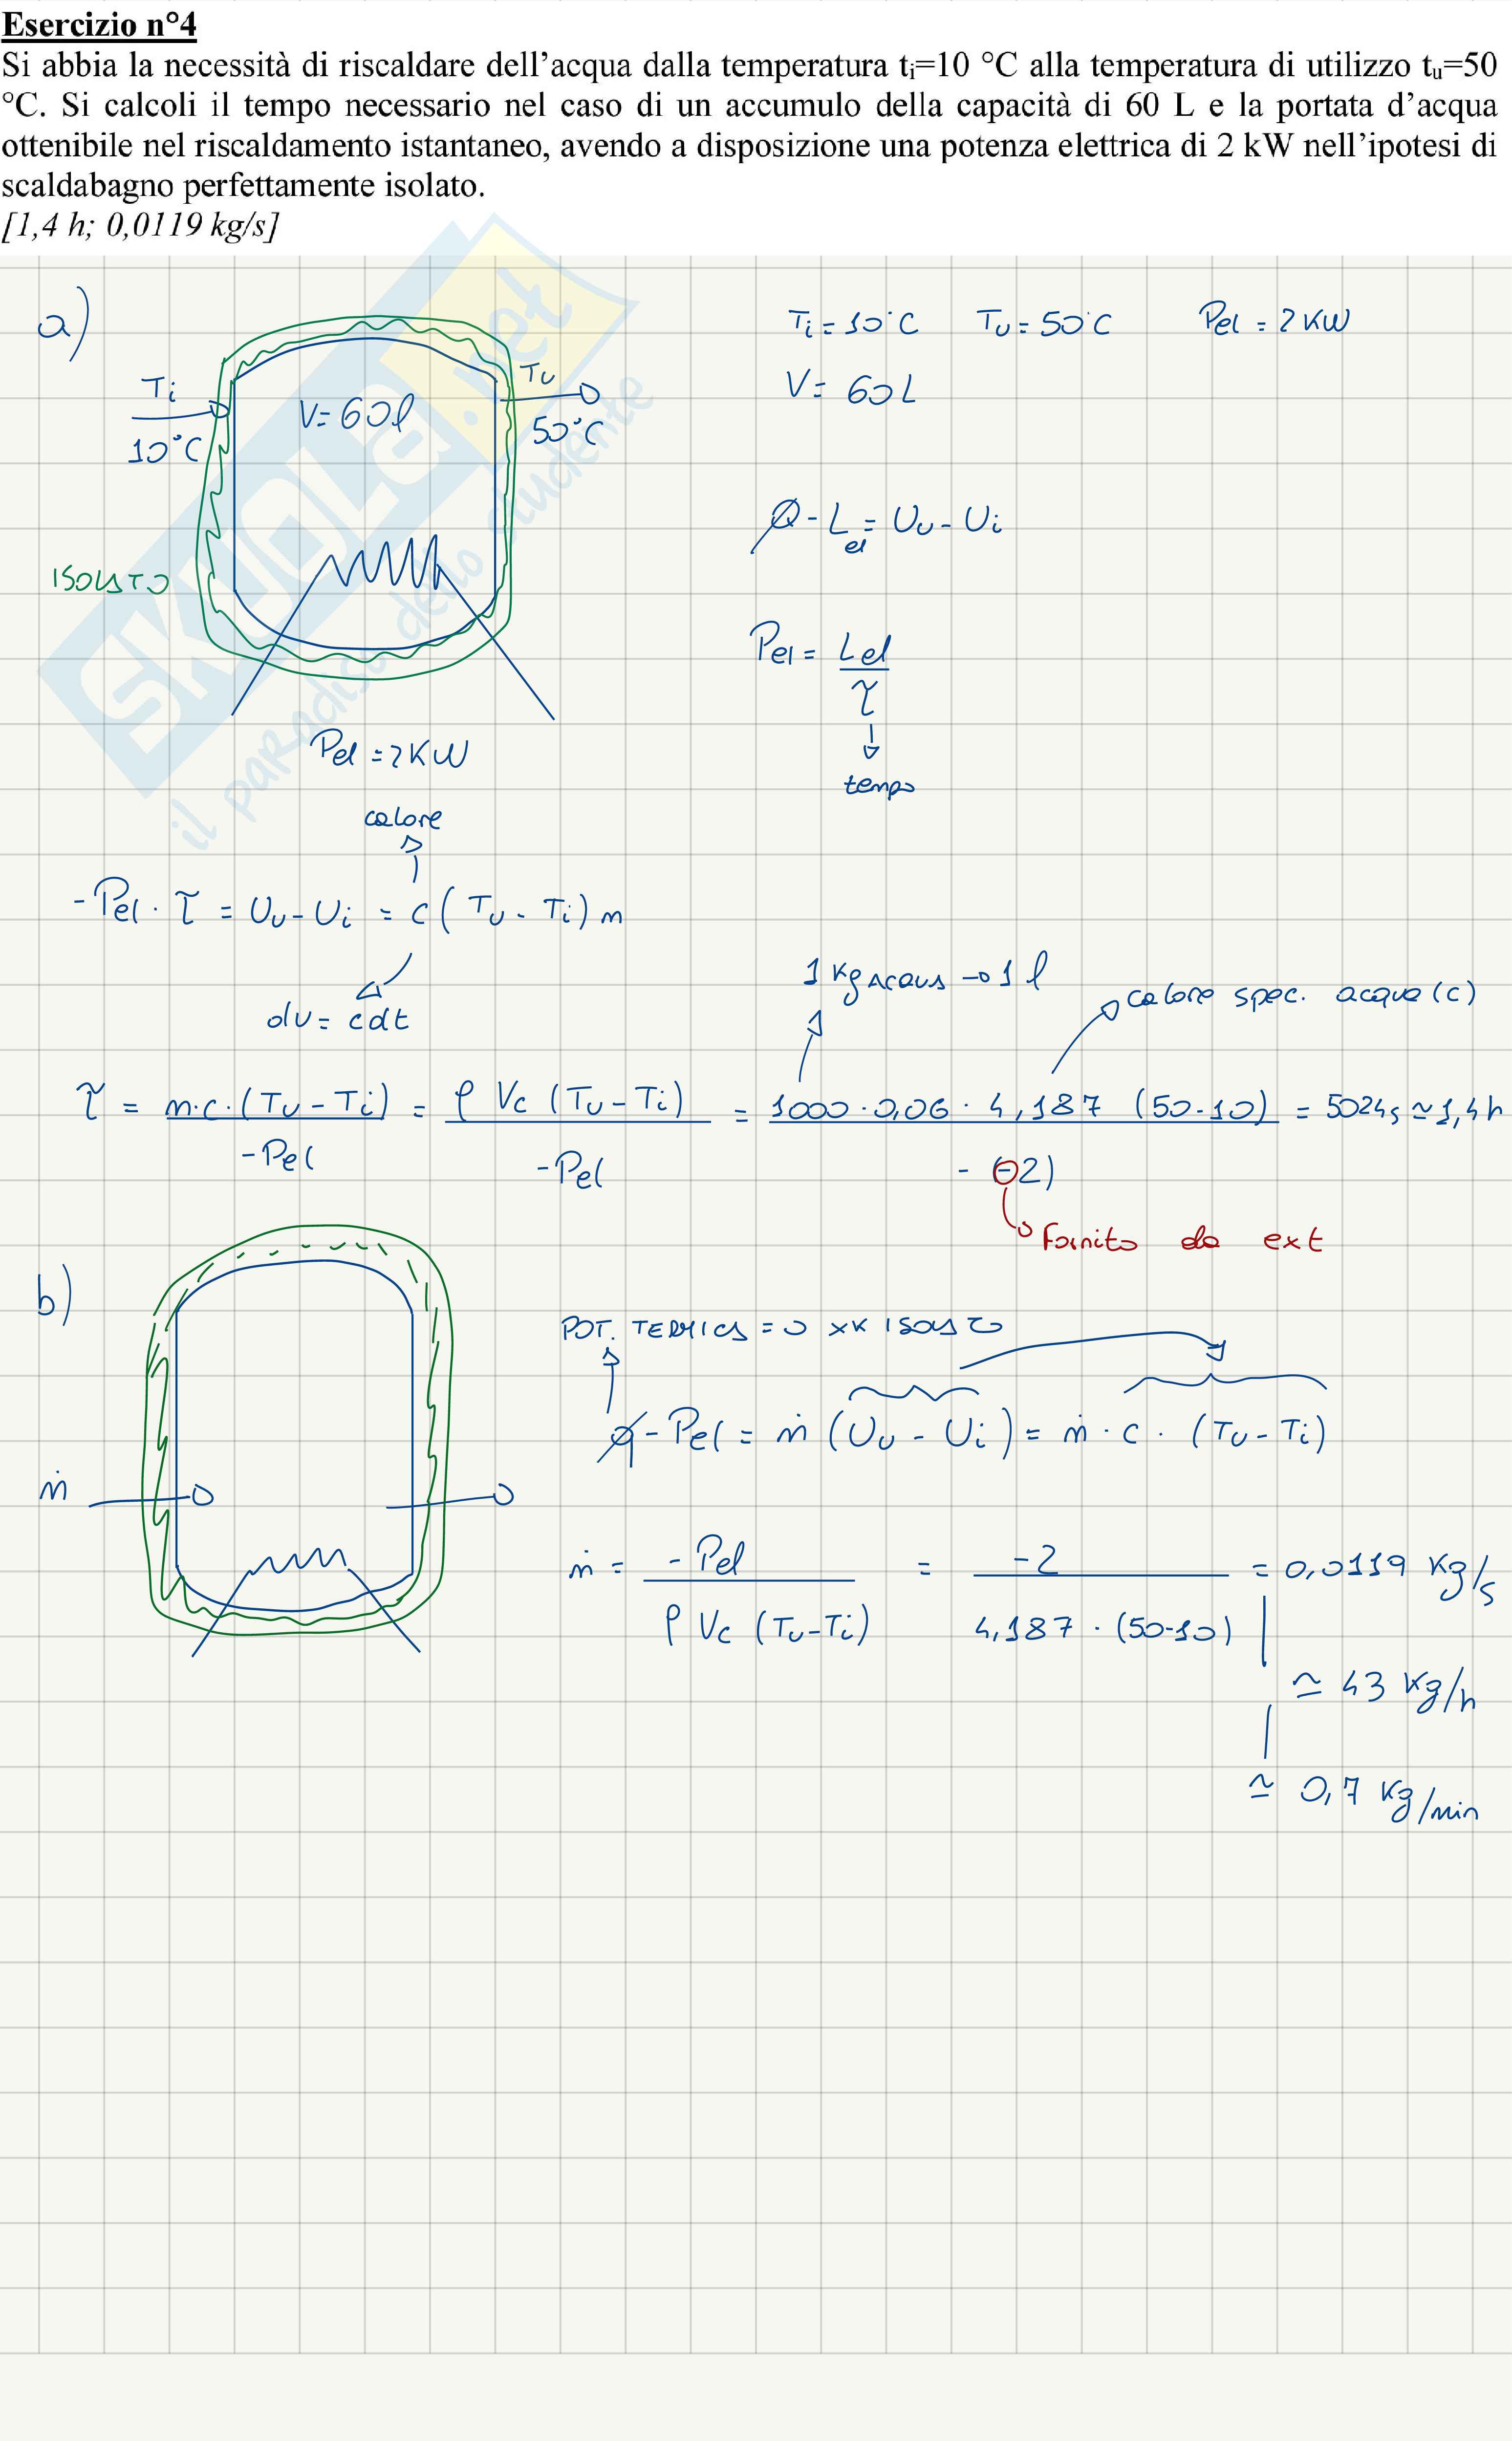 Esercizio n°4
Si abbia la necessità di riscaldare dell'acqua dalla temperatura tᵢ=10 °C alla temperatura di utilizzo tᵤ=50
°C. Si calcoli il tempo necessario nel caso di un accumulo della capacità di 60 L e la portata d'acqua
ottenibile nel riscaldamento istantaneo, avendo a disposizione una potenza elettrica di 2 kW nell'ipotesi di
scaldabagno perfettamente isolato.
[1,4 h; 0,0119 kg/s]
a)
Ti = 10°C Tu = 50°C Pel = 2 KW
V = 60 L
Ti
10°C
V = 60 l
Tu
50°C
Q - Lel = Uu - Ui
ISOLATO
Pel = Lel / τ
tempo
Pel = 2 KW
SKUOLA.net
il paradiso dello studente
calore
-Pel · τ = Uu - Ui = c (Tu - Ti) m
du = cdt
1 Kg ACQUA → 1 l
calore spec. acqua (c)
τ = m·c·(Tu - Ti) / -Pel = ρ Vc (Tu - Ti) / -Pel = 1000 · 0,06 · 4,187 (50-10) / -(-2) = 5024 s ≃ 1,4 h
Fornito da ext
b)
POT. TERMICA = 0 XK ISOLATO
q - Pel = ṁ (Uu - Ui) = ṁ · c · (Tu - Ti)
ṁ
ṁ = -Pel / ρ Vc (Tu - Ti) = -2 / 4,187 · (50-10) = 0,0119 Kg/s
≃ 43 Kg/h
≃ 0,7 Kg/min